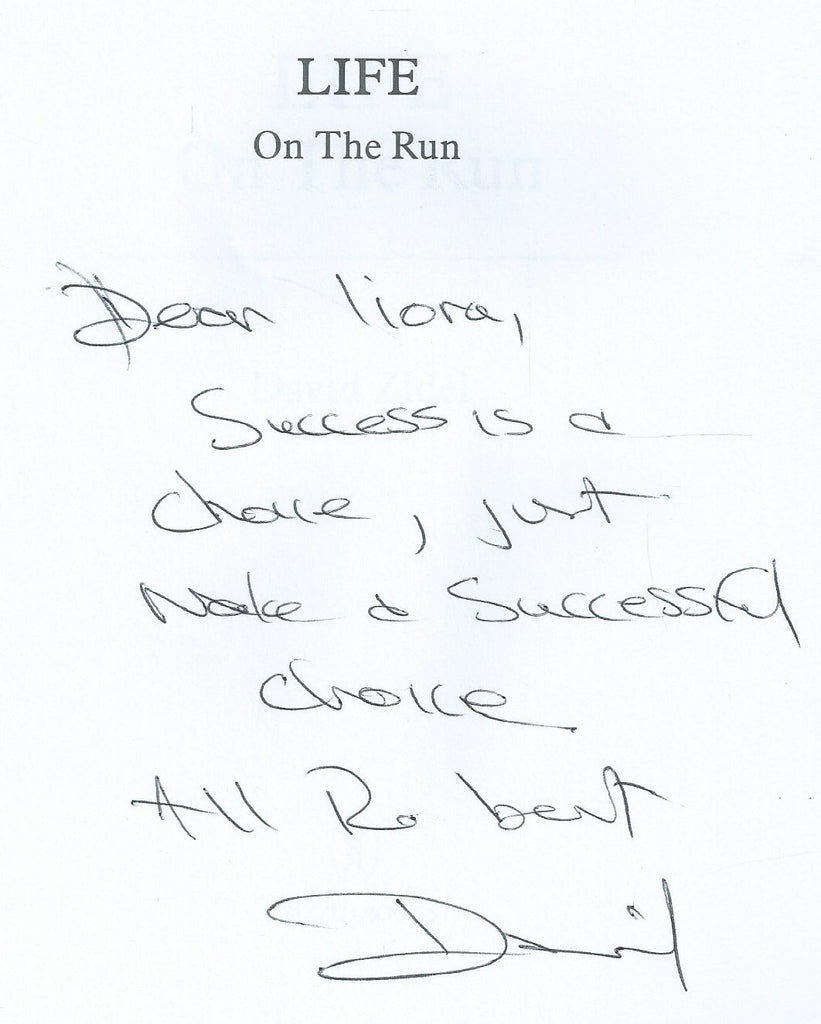 LIFE
On The Run
Dear liora,
Success is a
choice, just
Make a Successful
choice
All The best
David